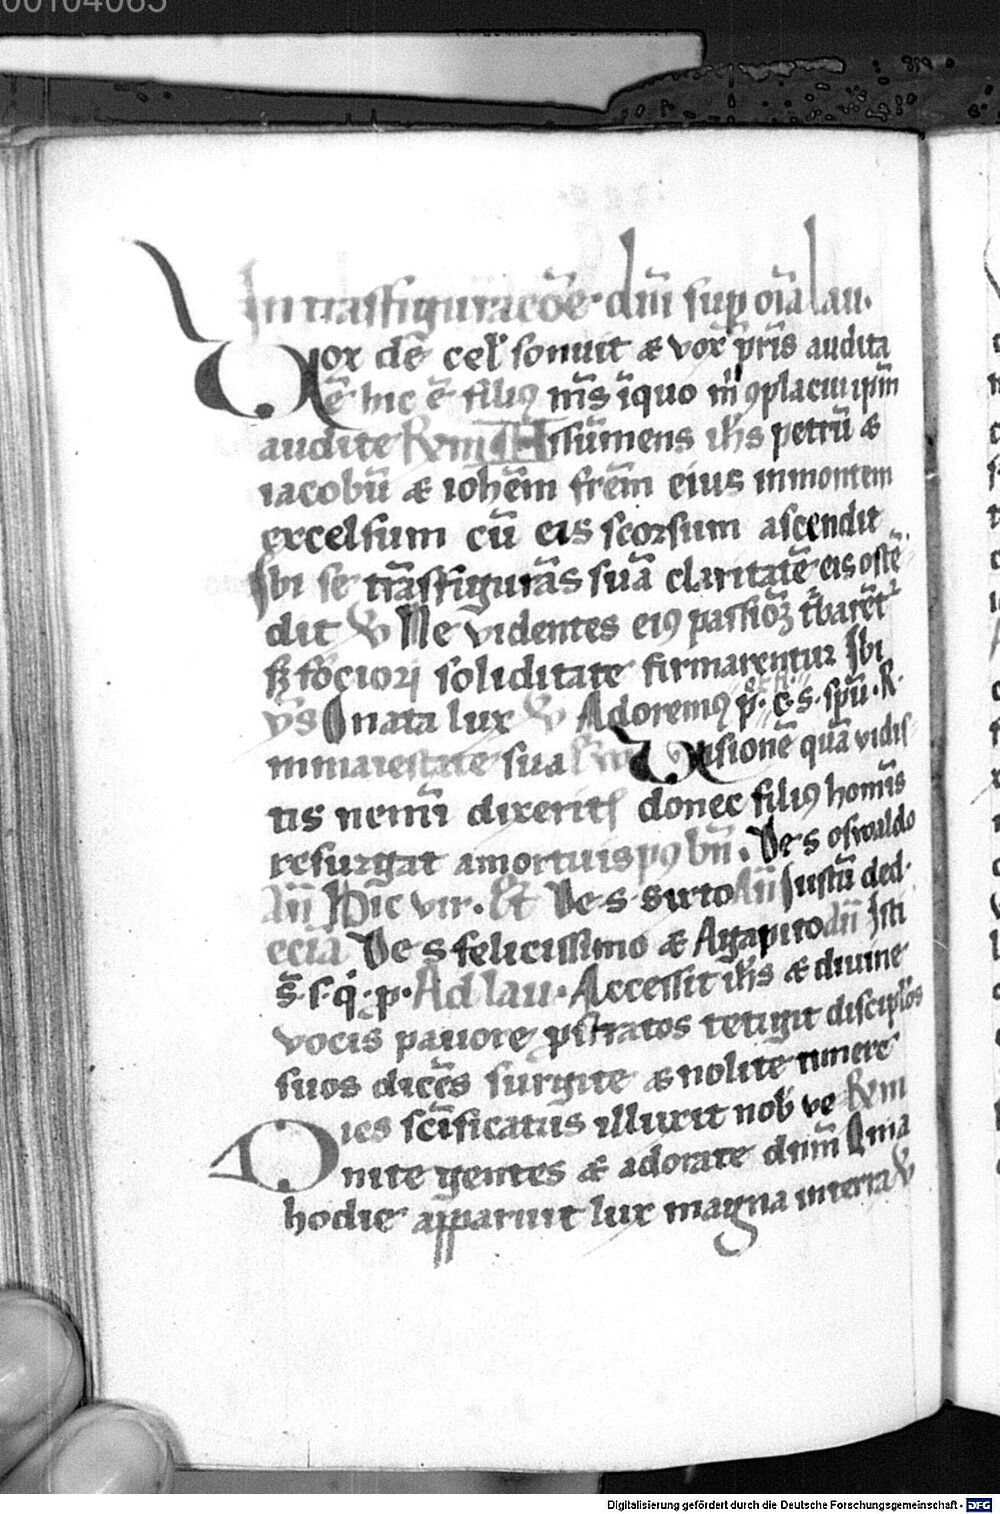 00104065
In trāsfiguracōe· dm̄ sup oīa lau·
Vox dē cel' sonuit & vox pris audita
ē hic ē filiꝰ mꝰs ī quo m ꝯplacui ipm̄
audite Assūmens ihs petrū &
iacobū & iohēm frēm eius in montem
excelsum cū eis seorsum ascendit
Ibi se trāsfigurās suā claritatē eis ostē
dit Ne videntes eiꝰ passioꝫ t̄barēt
sꝫ fōciori soliditate firmarentur Ibi
vs O nata lux Adoremꝰ p· f· & s· spū· R·
in maiestate sua Visionē quā vidis
tis nemī dixeritꝭ donec filiꝰ homīs
resurgat a mortuis pꝰ bn̄· De s oswaldo
An̄ Hic vir· Et De s· sixto An̄ Justū ded·
eciā De s felicissimo & Agapito an̄ Isti
s̄· s· q· p· Ad lau· Accessit ihs & diuine
vocis pauore pstratos tetigit discipl'os
suos dicēs surgite & nolite timere
Dies scīficatus illuxit nob' ve
nite gentes & adorate dnm̄ Quia
hodie apparuit lux magna in terra
Digitalisierung gefördert durch die Deutsche Forschungsgemeinschaft - DFG